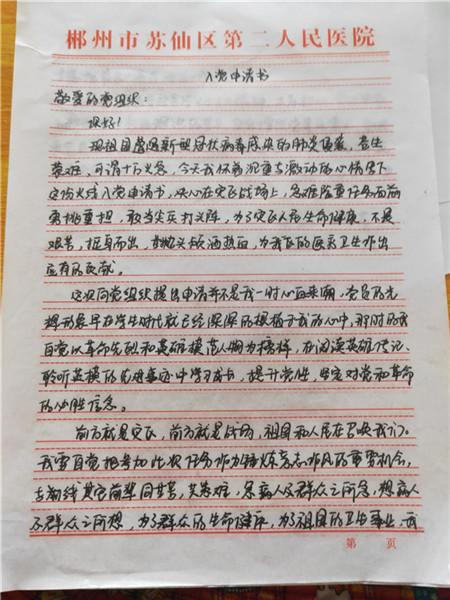 郴州市苏仙区第二人民医院
入党申请书
敬爱的党组织：
您好！
现祖国遭遇新型冠状病毒感染的肺炎侵袭，苍生
蒙难，可谓十万火急，今天我怀着沉重与激动的心情写下
这份火线入党申请书，决心在灾区战场上，急难险重任务面前
勇挑重担，敢当尖兵打头阵，为了灾区人民生命健康，不畏
艰苦，挺身而出，甘抛头颅洒热血，为我区的医疗卫生作出
应有的贡献。
这次向党组织提出申请并不是我一时心血来潮，党员的光
辉形象早在学生时代就已经深深的根植于我的心中，那时的我
自觉以革命先烈和英雄模范人物为榜样，在阅读英雄传记、
聆听英模的先进事迹中学习成长，提升党性，坚定对党和革命
的必胜信念。
前方就是灾区，前方就是战场，祖国和人民在召唤我们。
我要自觉把参加此次任务作为锤炼意志作风的重要机会，
与前线其它前辈同甘苦，共患难，急病人及群众之所急，想病人
及群众之所想，为了群众的生命健康，为了祖国的卫生事业，我
第 页